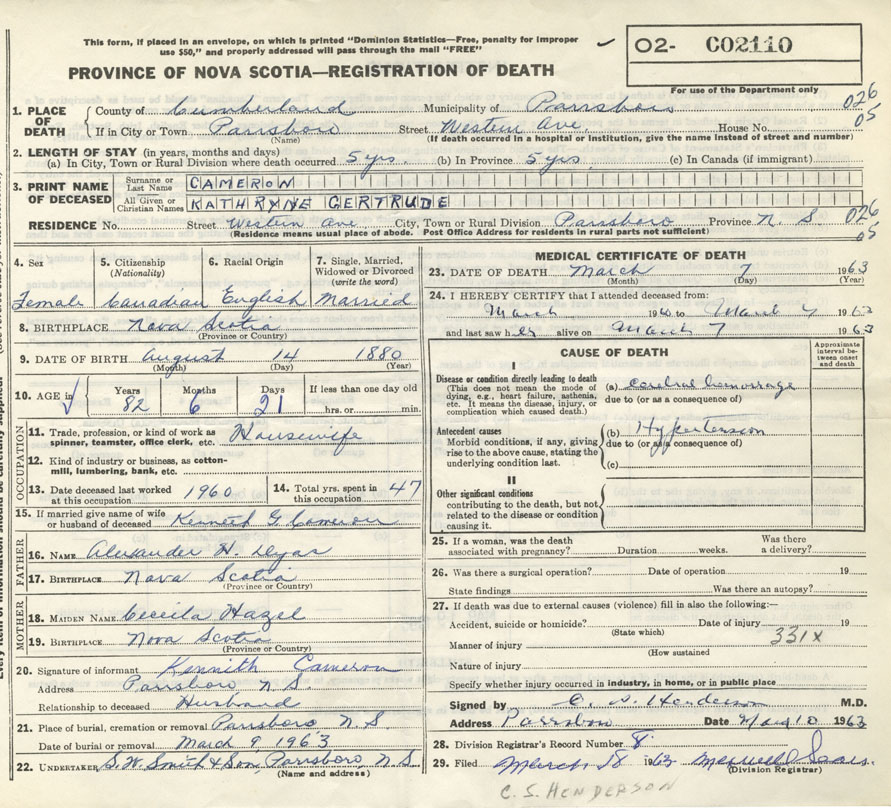 This form, if placed in an envelope, on which is printed "Dominion Statistics—Free, penalty for improper
use $50," and properly addressed will pass through the mail "FREE"
02- C02110
PROVINCE OF NOVA SCOTIA—REGISTRATION OF DEATH
For use of the Department only
1. PLACE OF DEATH County of Cumberland Municipality of Parrsboro 026
If in City or Town Parrsboro Street Western Ave. House No. 05
(Name) (If death occurred in a hospital or institution, give the name instead of street and number)
2. LENGTH OF STAY (in years, months and days)
(a) In City, Town or Rural Division where death occurred 5 yrs. (b) In Province 5 yrs (c) In Canada (if immigrant)
3. PRINT NAME OF DECEASED Surname or Last Name CAMERON
All Given or Christian Names KATHRYNE GERTRUDE
RESIDENCE No. Street Western Ave City, Town or Rural Division Parrsboro Province N. S. 026
(Residence means usual place of abode. Post Office Address for residents in rural parts not sufficient) 05
4. Sex 5. Citizenship (Nationality) 6. Racial Origin 7. Single, Married, Widowed or Divorced (write the word)
Female Canadian English Married
8. BIRTHPLACE Nova Scotia
(Province or Country)
9. DATE OF BIRTH August 14 1880
(Month) (Day) (Year)
10. AGE in Years Months Days If less than one day old
82 6 21 hrs. or min.
OCCUPATION
11. Trade, profession, or kind of work as spinner, teamster, office clerk, etc. Housewife
12. Kind of industry or business, as cotton-mill, lumbering, bank, etc.
13. Date deceased last worked at this occupation 1960 14. Total yrs. spent in this occupation 47
15. If married give name of wife or husband of deceased Kenneth G Cameron
FATHER
16. NAME Alexander H. Dyar
17. BIRTHPLACE Nova Scotia
(Province or Country)
MOTHER
18. MAIDEN NAME Cecelia Hazel
19. BIRTHPLACE Nova Scotia
(Province or Country)
20. Signature of informant Kennith Cameron
Address Parrsboro, N.S.
Relationship to deceased Husband
21. Place of burial, cremation or removal Parrsboro N.S
Date of burial or removal March 9, 1963
22. UNDERTAKER S.W. Smith & Son, Parrsboro, N.S
(Name and address)
MEDICAL CERTIFICATE OF DEATH
23. DATE OF DEATH March 7 1963
(Month) (Day) (Year)
24. I HEREBY CERTIFY that I attended deceased from:
March 19 to March 7 1963
and last saw her alive on March 7 1963
CAUSE OF DEATH
Approximate interval between onset and death
I
Disease or condition directly leading to death (a) cerebral hemorrage
(This does not mean the mode of dying, e.g., heart failure, asthenia, etc. It means the disease, injury, or complication which caused death.)
due to (or as a consequence of)
Antecedent causes (b) Hypertension
Morbid conditions, if any, giving rise to the above cause, stating the underlying condition last.
due to (or as a consequence of)
(c)
II
Other significant conditions
contributing to the death, but not related to the disease or condition causing it.
25. If a woman, was the death associated with pregnancy? Duration weeks. Was there a delivery?
26. Was there a surgical operation? Date of operation 19
State findings Was there an autopsy?
27. If death was due to external causes (violence) fill in also the following:—
Accident, suicide or homicide? Date of injury 19
(State which) 331X
Manner of injury
(How sustained
Nature of injury
Specify whether injury occurred in industry, in home, or in public place
Signed by C. S. Henderson M.D.
Address Parrsboro Date Mar 10 1963
28. Division Registrar's Record Number 8
29. Filed March 18 1963
(Division Registrar)
C. S. HENDERSON